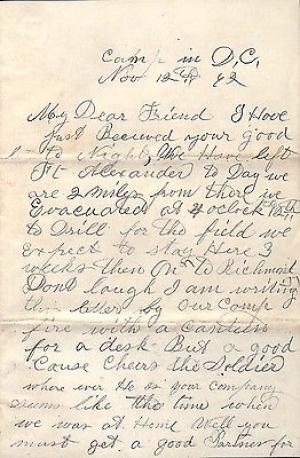 Camp in D,C,
Nov 12th 62
My Dear Friend I Have
Just Received your good
to Night, We Have left
Ft Alexander to Day we
are 2 miles from there we
Evacuared at 4 oclock
to Drill for the field we
Expect to stay Here 3
weeks then On to Richmond
Dont laugh I am writing
this letter by Our Camp
fire with a canteen
for a desk But a good
Cause Cheers the Soldier
where ever He is your Company
seems like the time when
we was at Home Well you
must get a good Partner for